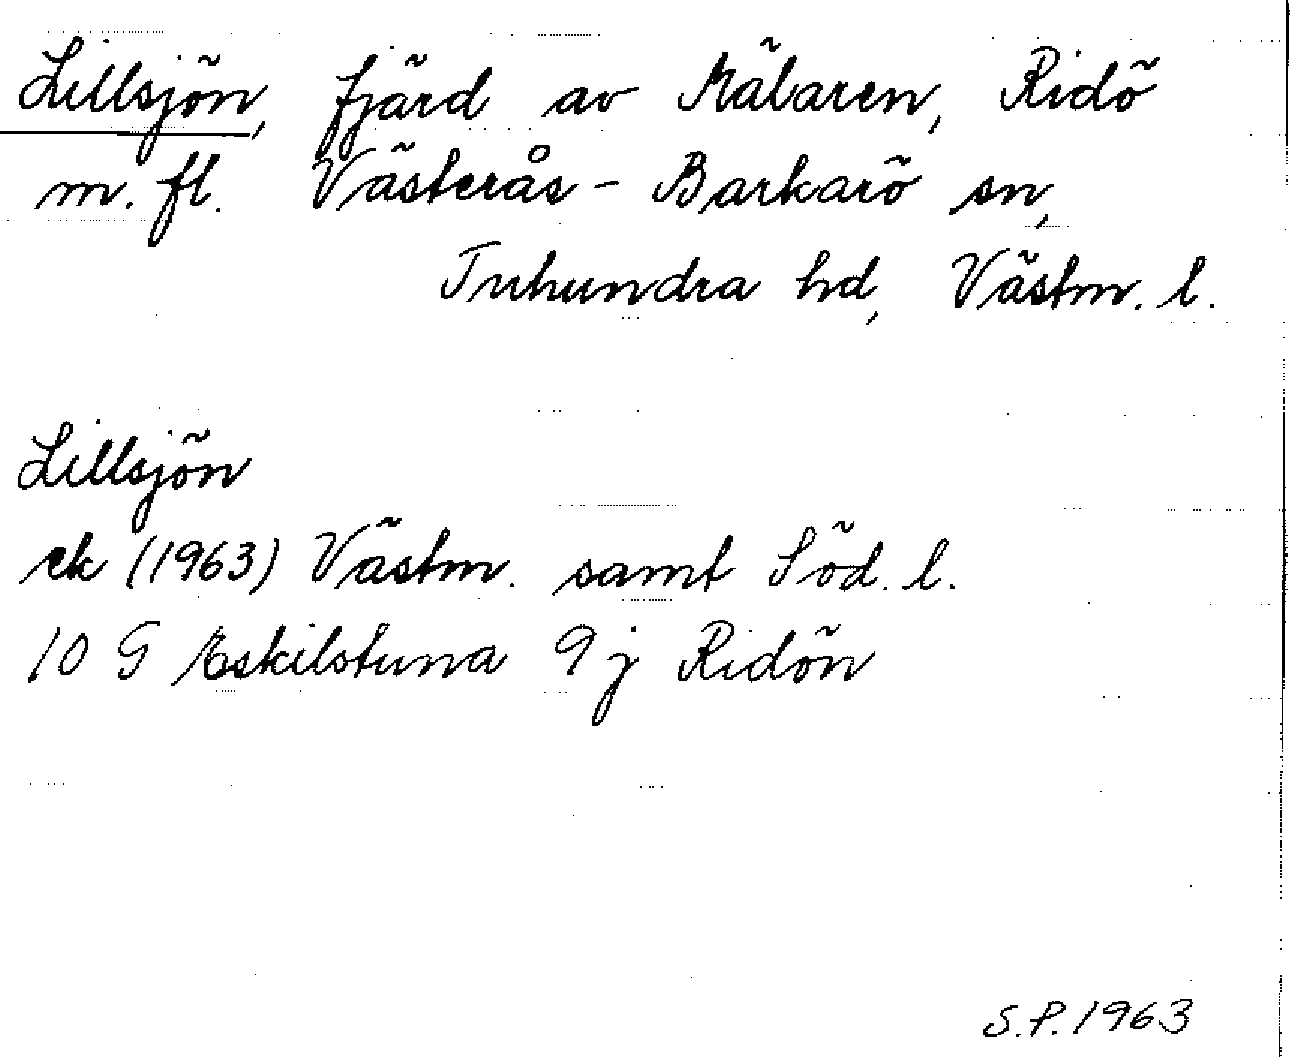 Lillsjön, fjärd av Mälaren, Ridö
m. fl. Västerås-Barkarö sn,
Tuhundra hd, Västm. l.
Lillsjön
ek (1963) Västm. samt Söd. l.
10 G Eskilstuna 9 j Ridön
S.P. 1963